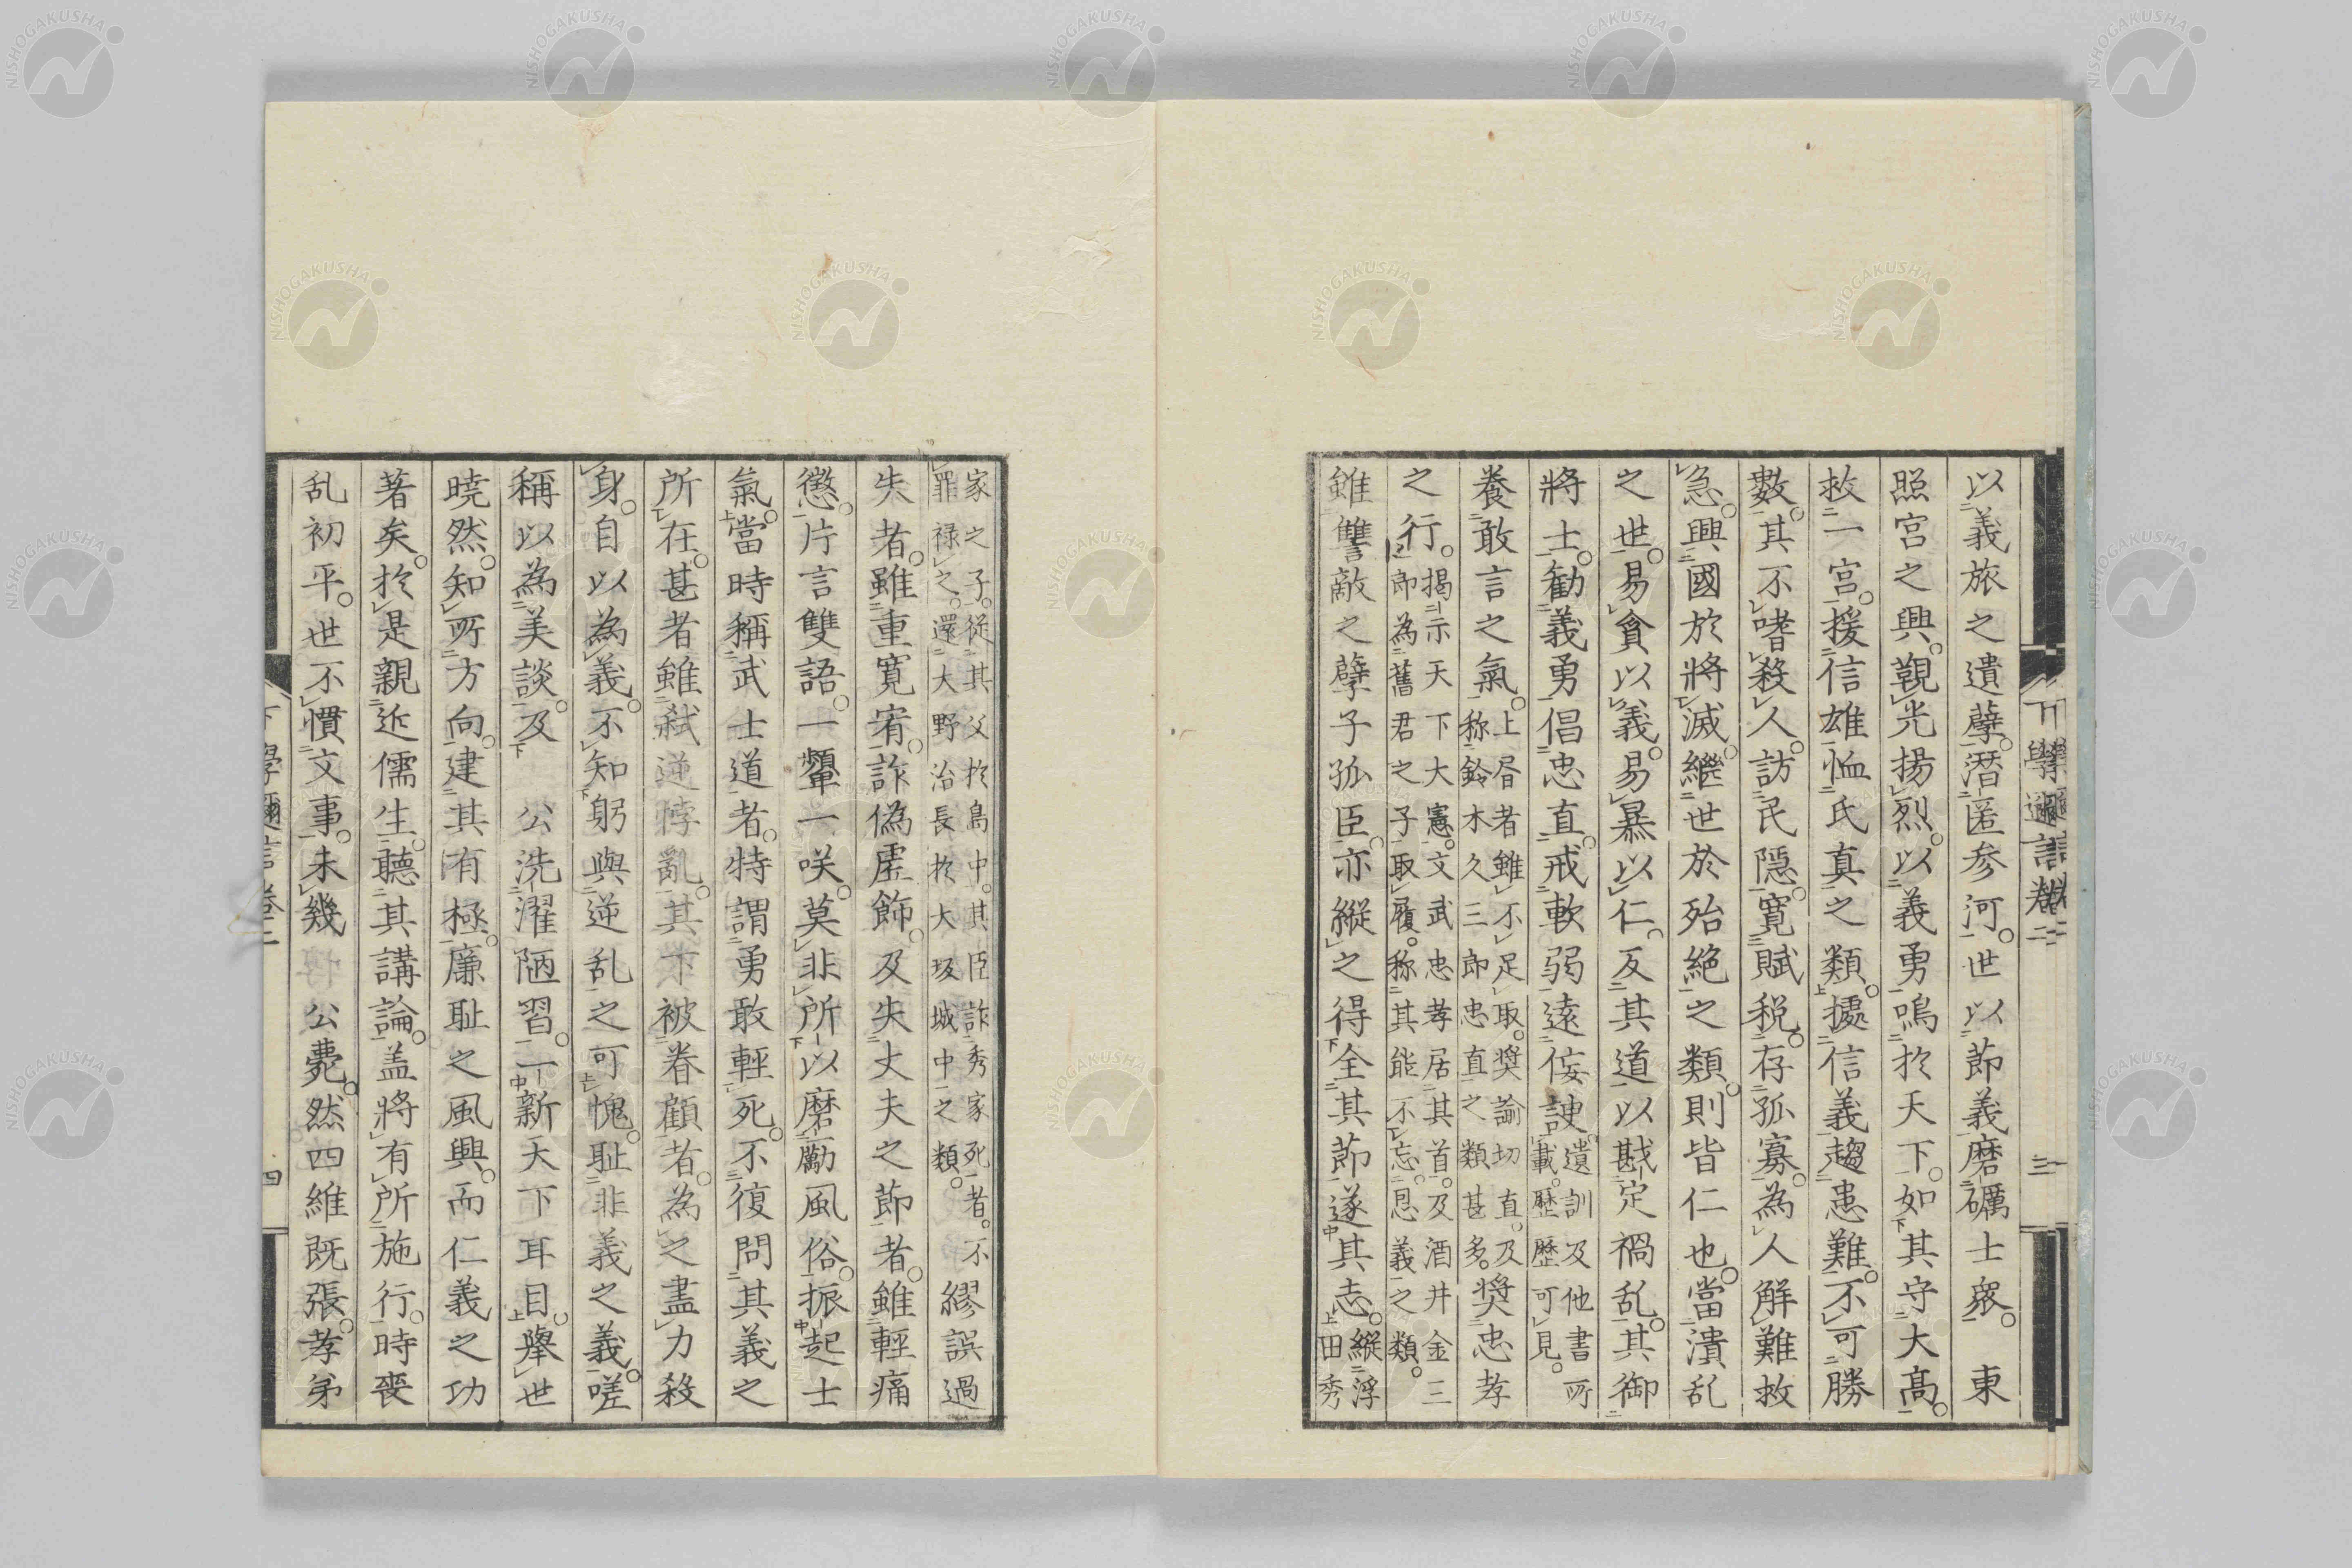 以義旅之遺孽。潜匿参河。世以節義磨礪士衆。　東
照宮之興。覲光揚烈。以義勇鳴於天下。如其守大高。
救一宮。援信雄。恤氏真之類。據信義趨患難。不可勝
數。其不嗜殺人。訪民隱。寬賦税。存孤寡。為人解難救
急。興國於將滅。繼世於殆絶之類。則皆仁也。當潰乱
之世。易貪以義。易暴以仁。反其道以戡定禍乱。其御
將士。勧義勇倡忠直。戒軟弱遠佞諛。遺訓及他書所
載。歷歷可見。
養敢言之氣。上昏者雖不足取。奨諭切直。及
称鈴木久三郎忠直之類甚多。奨忠孝
之行。揭示天下大憲。文武忠孝居其首。及酒井金三
郎為舊君之子取履。称其能不忘恩義之類。
雖讐敵之孽子孤臣。亦縦之得全其節遂其志。縦浮
田秀
家之子。從其父於島中。其臣詐秀家死者。不
罪祿之。還大野治長於大坂城中之類。繆誤過
失者。雖重寛宥。詐偽虚飾。及失丈夫之節者。雖輕痛
懲。片言雙語。一顰一咲。莫非所以磨勵風俗。振起士
氣。當時稱武士道者。特謂勇敢輕死。不復問其義之
所在。甚者雖弑逆悖亂。其下被眷顧者。為之盡力殺
身。自以為義。不知躬與逆乱之可愧。耻非義之義。嗟
稱以為美談。及　公洗濯陋習。一新天下耳目。舉世
暁然。知所方向。建其有極。廉耻之風興。而仁義之功
著矣。於是親近儒生。聽其講論。盖將有所施行。時喪
乱初平。世不慣文事。未幾　公薨。然四維既張。孝弟
下學邇言卷二
三
下學邇言卷二
四